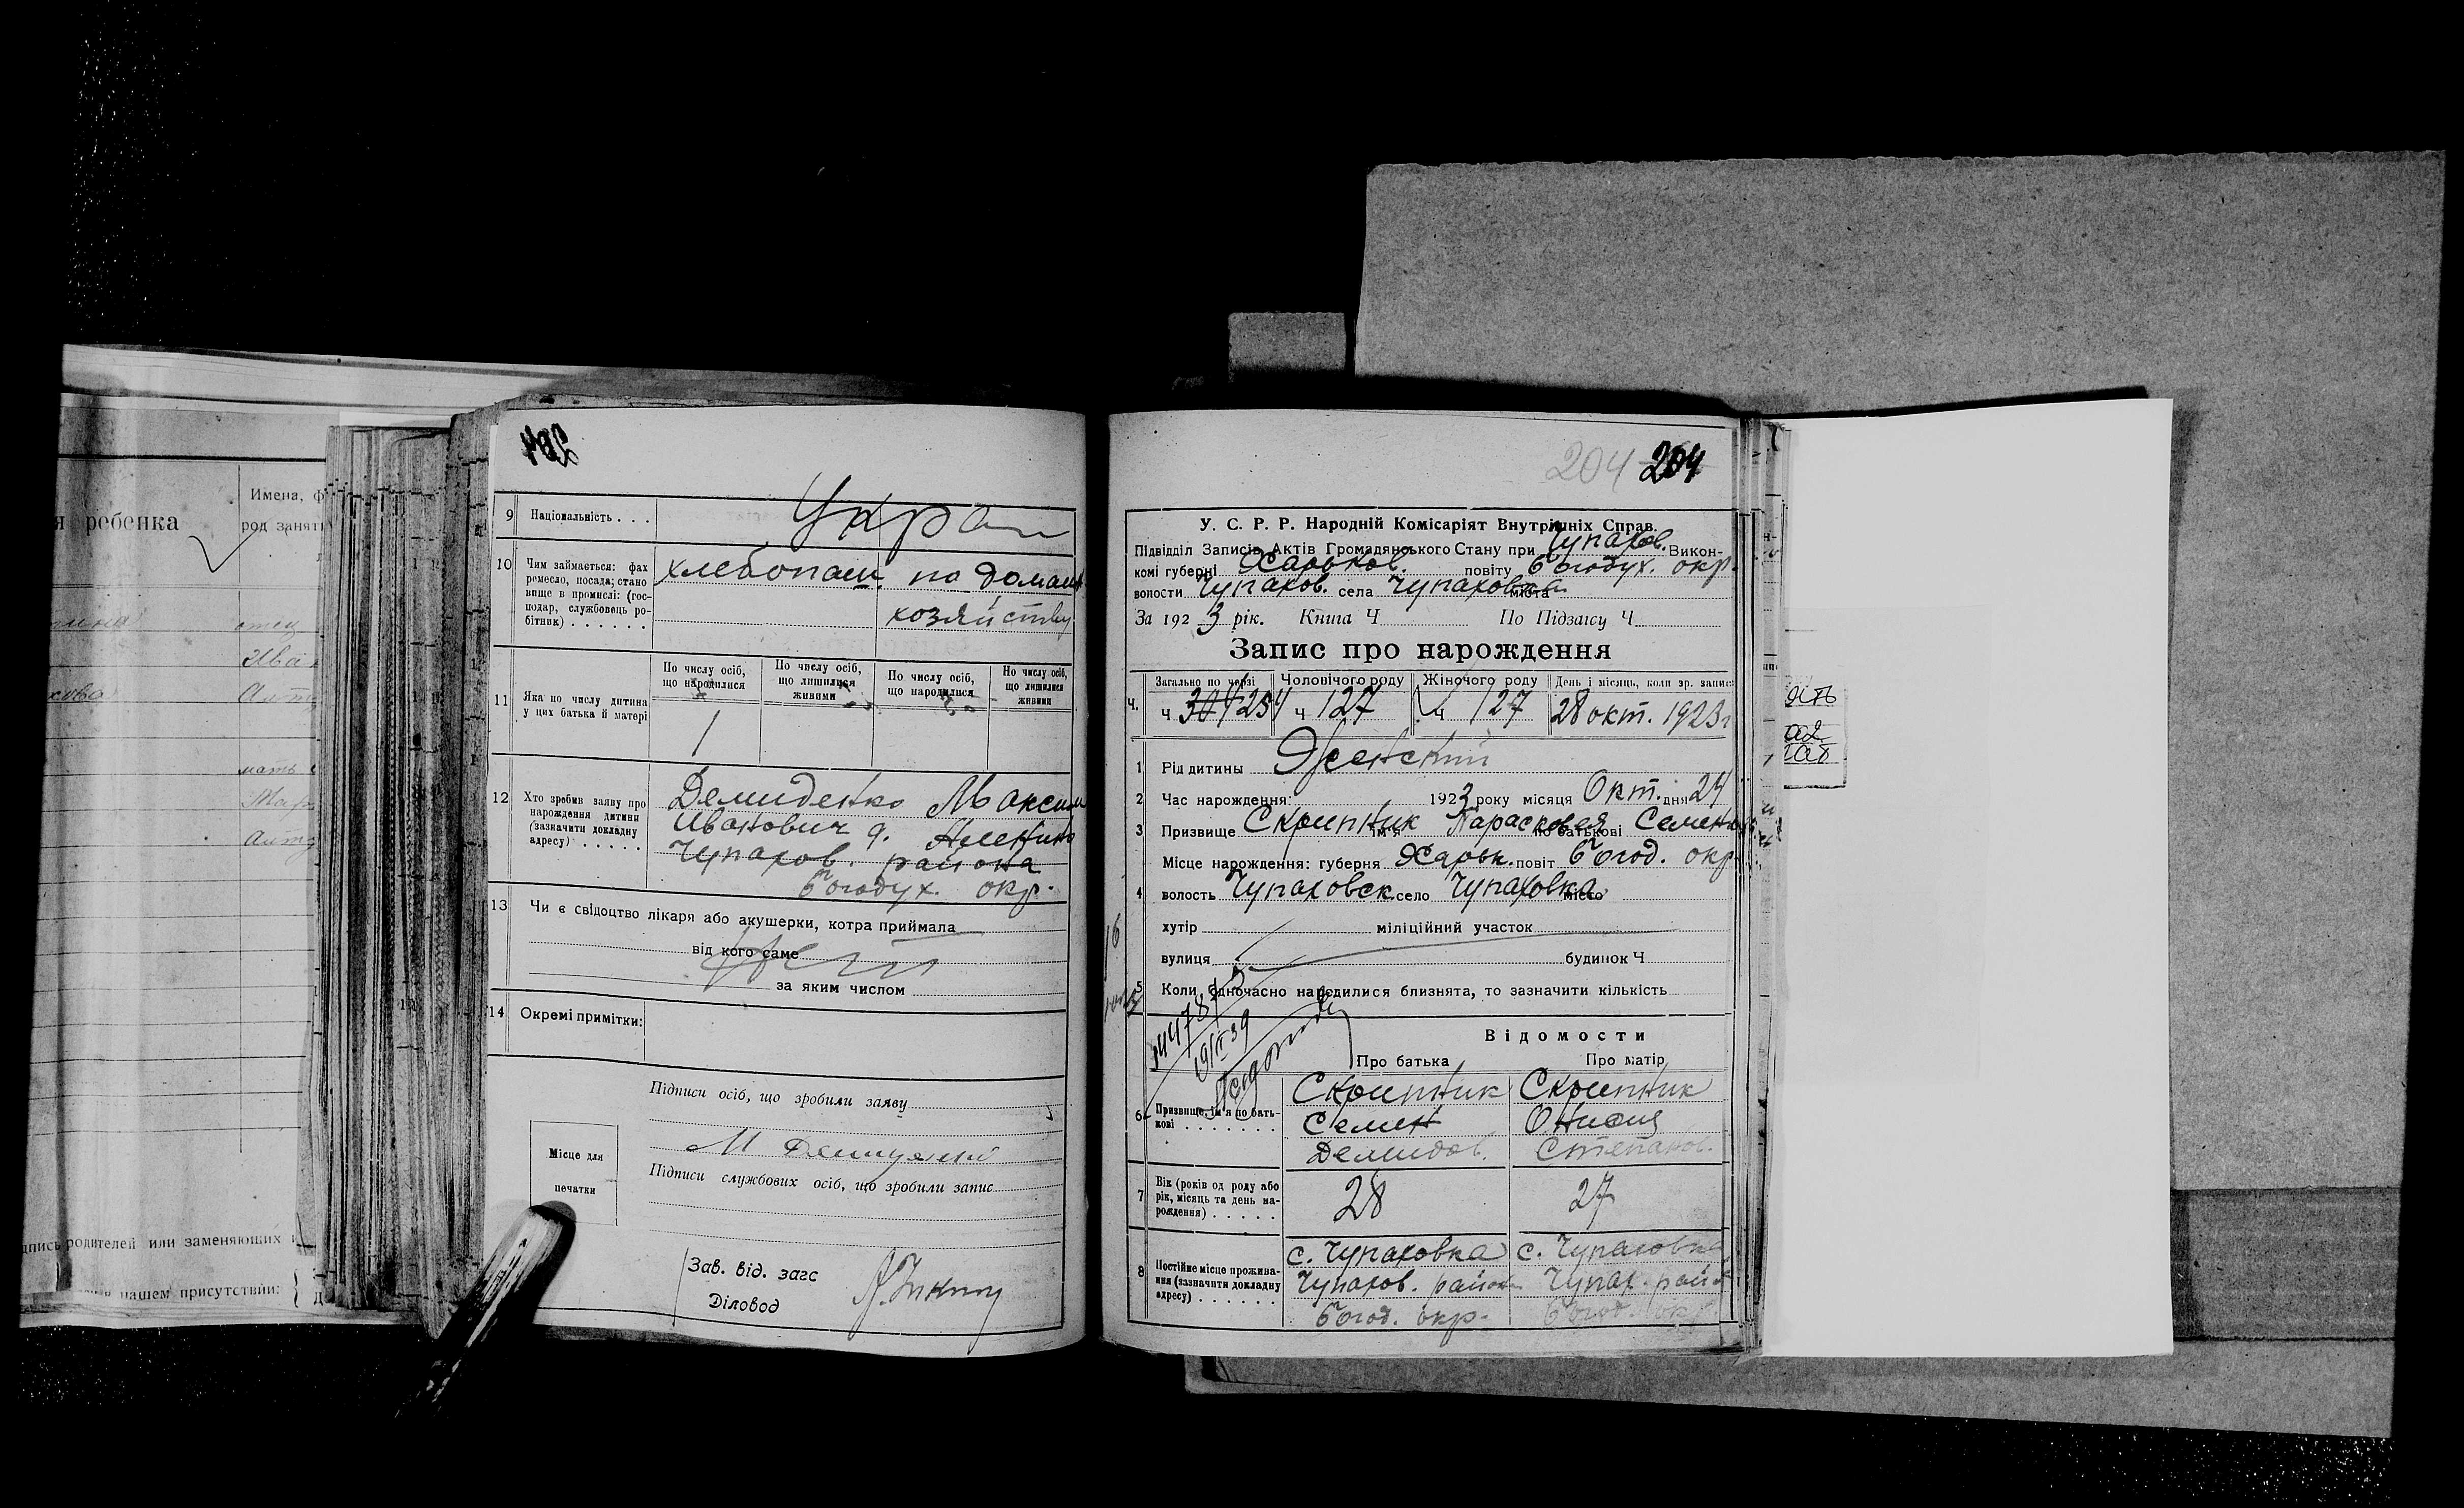 я ребенка
Имена, ф
род заняті
отец
Ива
мать
дпись родителей или заменяющих
в нашем присутствии:
9 Національність . . . Укра
10 Чим займається: фах ремесло, посада; становище в промислі: (господар, службовець робітник) . . . . . .
хлебопаш. по домашн
хозяйству
11 Яка по числу дитина у цих батька й матері
По числу осіб, що народилися
По числу осіб, що лишилися живими
По числу осіб, що народилися
По числу осіб, що лишилися живими
1
12 Хто зробив заяву про нарождення дитини (зазначити докладну адресу) . . . . .
Демиденко Максим
Иванович
Чупахов. района
Богодух. окр.
13 Чи є свідоцтво лікаря або акушерки, котра приймала
від кого саме
за яким числом
14 Окремі примітки:
Підписи осіб, що зробили заяву
Місце для печатки
Підписи службових осіб, що зробили запис
Зав. від. загс
Діловод
204 204
У. С. Р. Р. Народній Комісаріят Внутрішніх Справ.
Підвідділ Записів Актів Громадянського Стану при Чупахов. Викон-
комі губерні Харьков. повіту Богодух. окр.
волости Чупахов. села Чупаховка міста
За 192 3 рік. Книга Ч По Підзагсу Ч
Запис про нарождення
Загально по черзі Чоловічого роду Жіночого роду День і місяць, коли зр. запис
Ч. ч 304 254 ч 127 ч 127 28 окт. 1923 г
1 Рід дитини Женский
2 Час нарождення: 1923 року місяця Окт. дня 24
3 Призвище Скрипник ім'я Парасковея по батькові Семен
Місце нарождення: губерня Харьк. повіт Богод. окр.
4 волость Чупаховск. село Чупаховка місто
хутір міліційний участок
вулиця будинок Ч
5 Коли одночасно народилися близнята, то зазначити кількість
Відомости
Про батька Про матір
6 Призвище, ім'я по батькові . . . . . . .
Скрипник Скрипник
Семен Онисия
Демидов. Степанов.
7 Вік (років од роду або рік, місяць та день нарождення) . . . . .
28 27
8 Постійне місце проживання (зазначити докладну адресу) . . . . . .
с. Чупаховка с. Чупаховка
Чупахов. район Чупах. район
Богод. окр. Богод. окр.